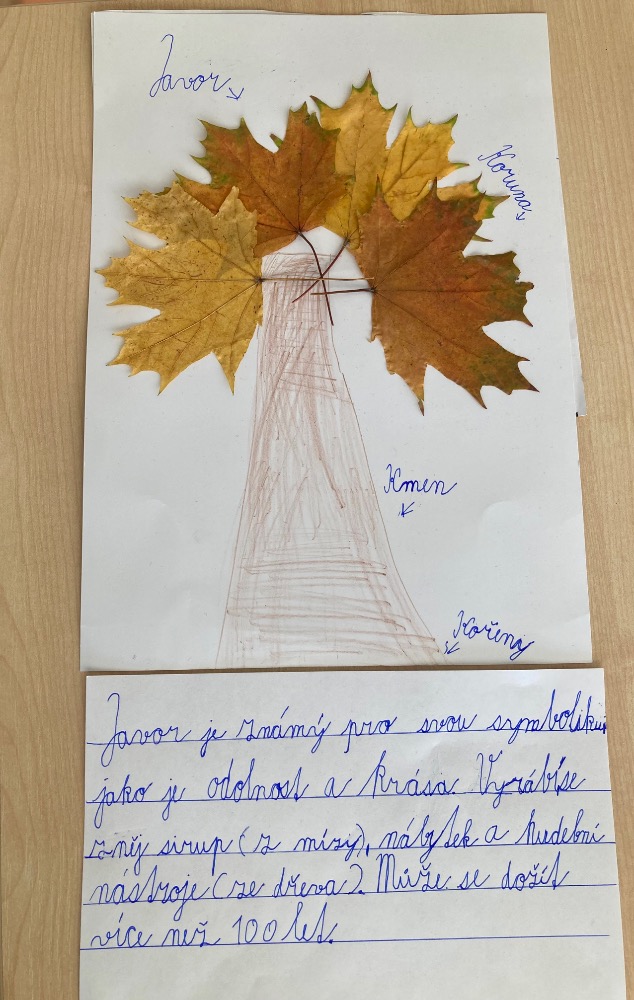 Javor
Koruna
Kmen
Kořeny
Javor je známý pro svou symboliku,
jako je odolnost a krása. Vyrábí se
z něj sirup (z mízy), nábytek a hudební
nástroje (ze dřeva). Může se dožít
více než 100 let.